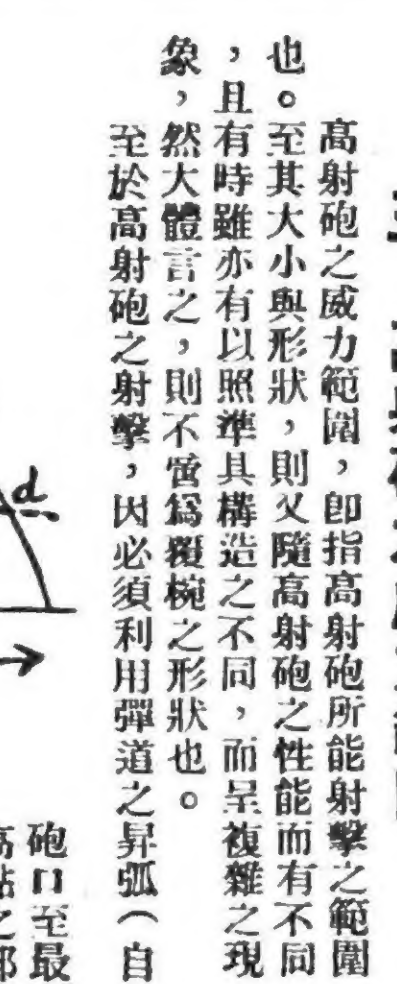 高射砲之威力範圍，卽指高射砲所能射擊之範圍
也。至其大小與形狀，則又隨高射砲之性能而有不同
，且有時雖亦有以照準具構造之不同，而呈複雜之現
象，然大體言之，則不啻爲覆椀之形狀也。
至於高射砲之射擊，因必須利用彈道之昇弧（自
砲口至最
高點之部
d